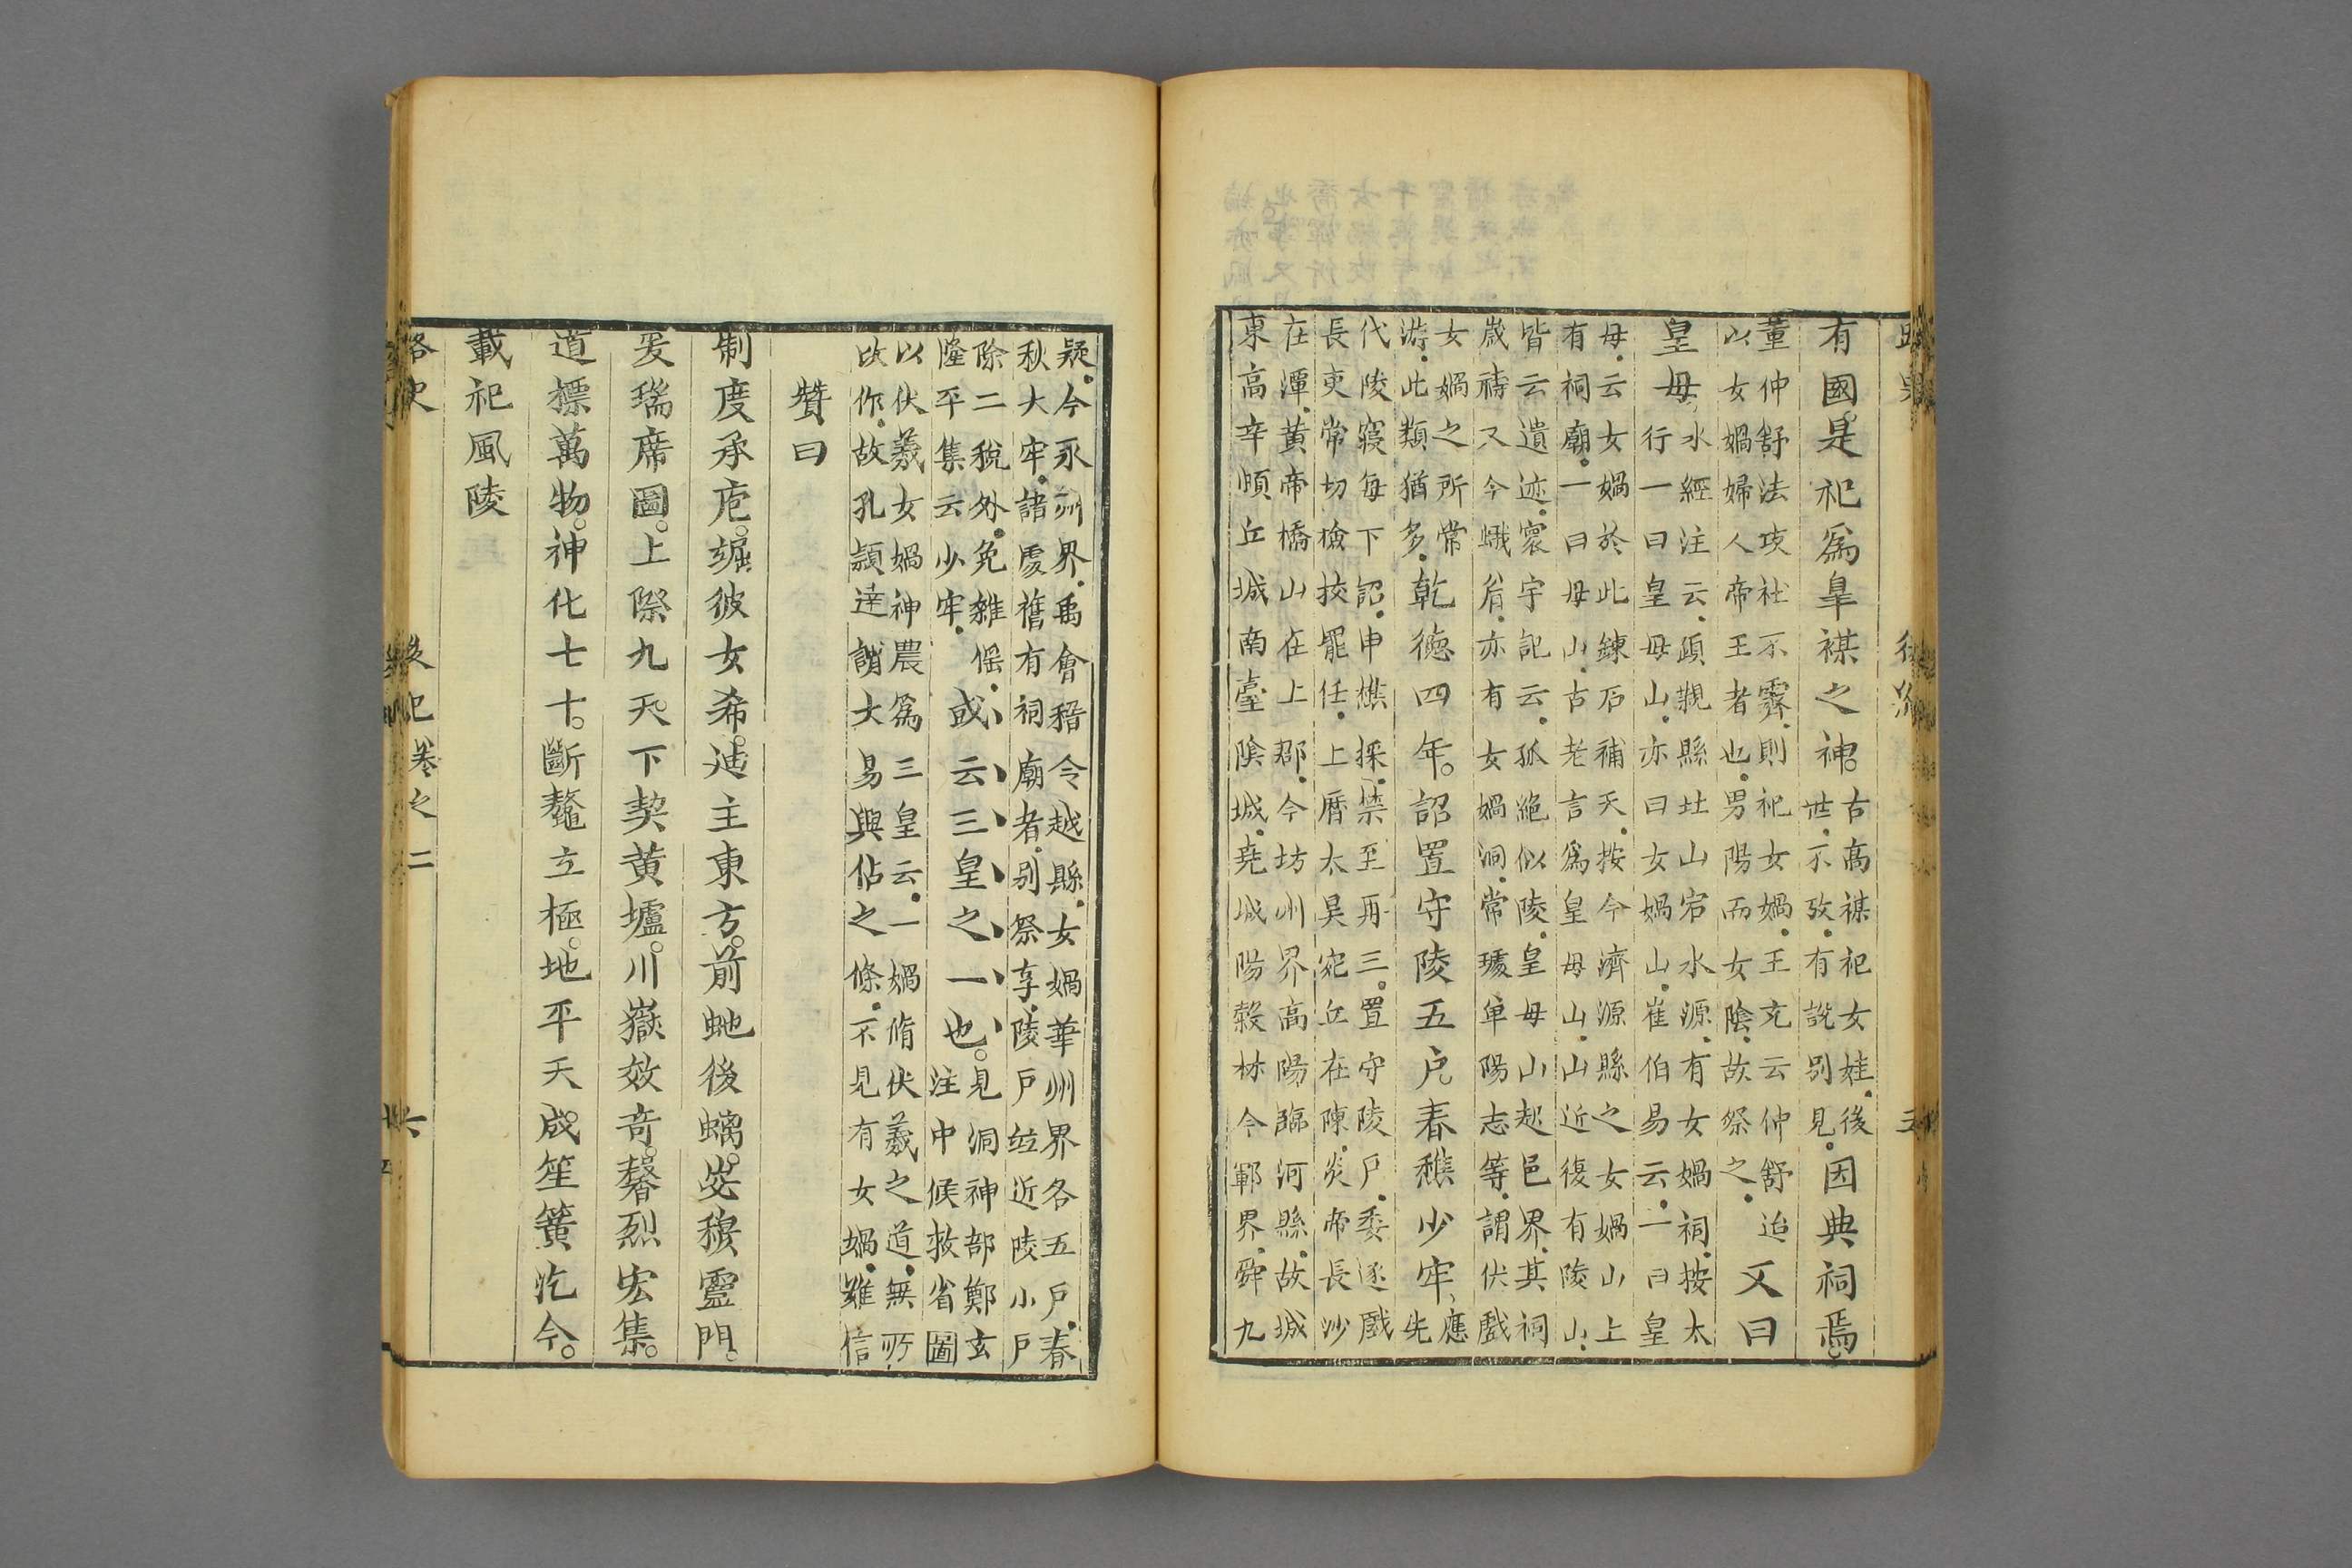 有國是祀爲臯禖之神古高禖祀女媧後
世不攷有說别見因典祠焉
董仲舒法攻社不霽則祀女媧王充云仲舒迨
以女媧婦人帝王者也男陽而女陰故祭之又曰
皇母水經注云頙親縣北山宕水源有女媧祠按太
行一曰皇母山亦曰女媧山崔伯易云一曰皇
母云女媧於此鍊石補天按今濟源縣之女媧山上
有祠廟一曰母山古老言爲皇母山山近復有陵山
皆云遺迹寰宇記云孤絶似陵皇母山起邑界其祠
歲禱又今峨眉亦有女媧洞常璩單陽志等謂伏戲
女媧之所常
游此類猶多乾德四年詔置守陵五户春穮少牢應先
代陵寢每下詔申樵採禁至再三置守陵户委逐戲
長吏常切檢挍罷任上厝太昊宛丘在陳炎帝長沙
在潭黄帝橋山在上郡今坊州界高陽臨河縣故城
東高辛頋丘城南臺陰城堯城陽榖林今鄆界舜九
疑今永州界禹會稽今越縣女媧華州界各五户春
秋大牢諸處舊有祠廟者别祭享陵户竝近陵小户
除二稅外免雜徭
隆平集云少牢或云三皇之一也見洞神部鄭玄注中候敕省圖
以伏羲女媧神農爲三皇云一媧脩伏羲之道無所
改作故孔頴逹謂大易興佔之條不見有女媧雖信
贊曰
制度承庖堀彼女希迪主東方前虵後螭宓穆靈門
爰瑞席圖上際九天下契黄壚川嶽效竒馨烈宏集
道摽萬物神化七十斷鼇立極地平天成笙簧汔今
載祀風陵
路史 後紀卷之二 六